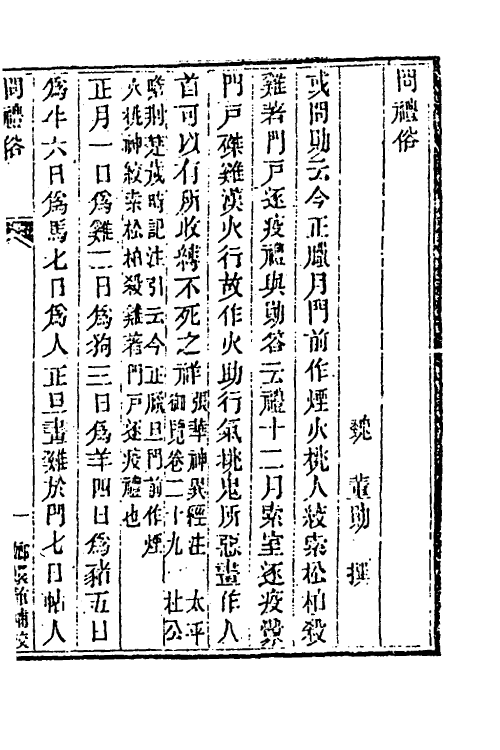 問禮俗
魏　董勛　撰
或問勛云今正臘月門前作煙火桃人絞索松柏殺
雞著門戶逐疫禮與勛答云禮十二月索室逐疫釁
門戶磔雞漢火行故作火助行氣桃鬼所惡畫作人
首可以有所收縛不死之祥張華神異經注　太平
御覽卷二十九　杜公
瞻荆楚歲時記注引云今正臘旦門前作煙
火桃神絞索松柏殺雞著門戶逐疫禮也
正月一日為雞二日為狗三日為羊四日為豬五日
為牛六日為馬七日為人正旦畫雞於門七日帖人
問禮俗
一
補校